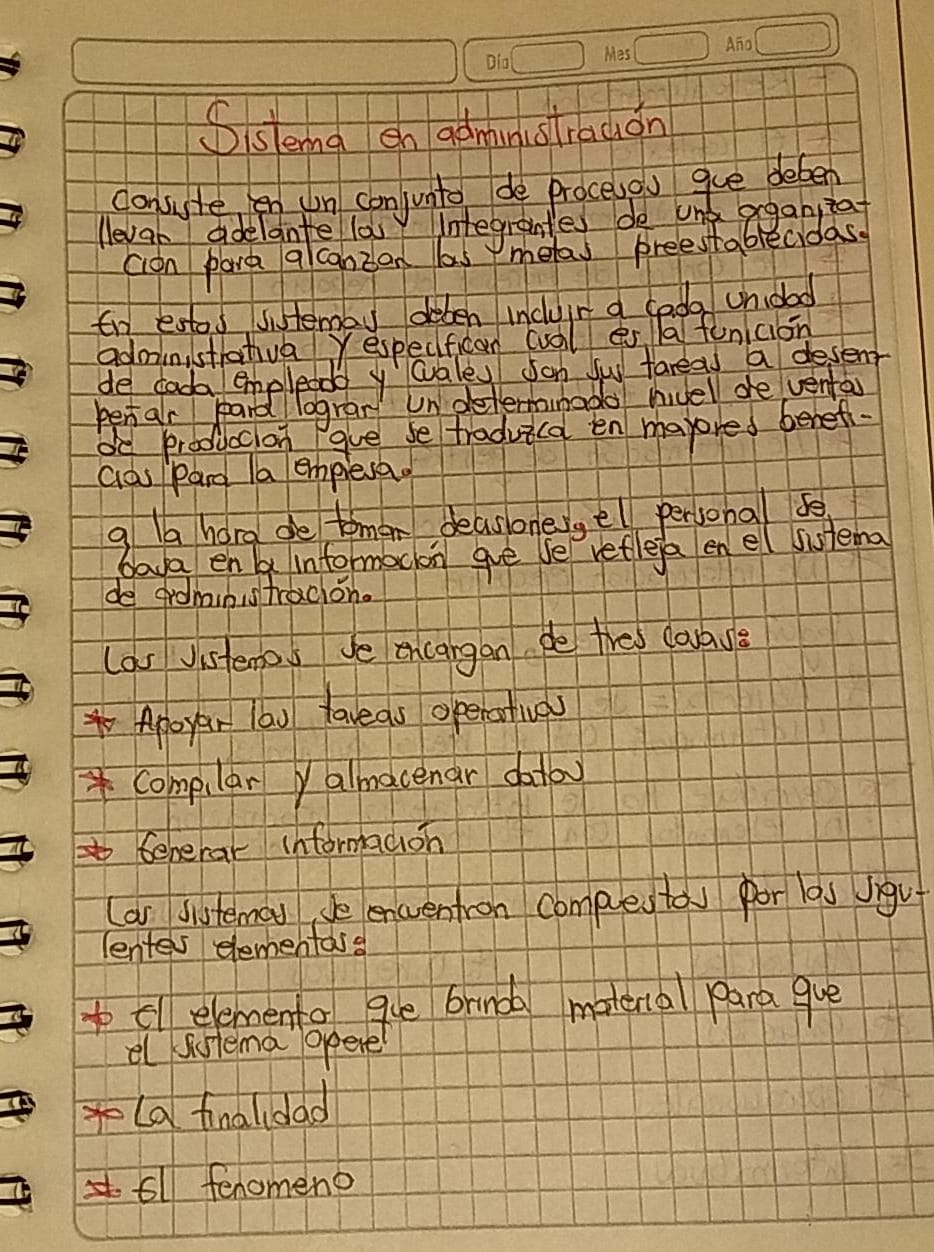 Dia Mes Año
Sistema en administración
consiste en un conjunto de procesos que deben
llevar adelante los integrantes de una organiza-
cion para alcanzar las metas preestablecidas.
En estos sistemas deben incluir a cada unidad
administrativa y especifican cual es la funición
de cada empleado y cuales son sus tareas a desem-
peñar para lograr un determinado nivel de ventas
de producción que se traduzca en mayores benefi-
cios para la empresa.
a la hora de tomar decisiones, el personal se
basa en la información que se refleja en el sistema
de administración.
Los sistemas se encargan de tres cosas:
* Apoyar las tareas operativas
* Compilar y almacenar datos
* Generar información
Los sistemas se encuentran compuestos por los sigui-
entes elementos:
* El elemento que brinda material para que
el sistema opere
* La finalidad
* El fenomeno